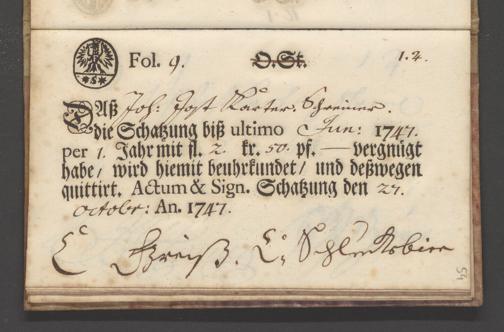 *S*
Fol. 9. O.St. 1.2.
Daß Joh: Jost Karter. Schreiner.
die Schatzung biß ultimo Jun: 1747.
per 1. Jahr mit fl. 2. kr. 50. pf. — vergnügt
habe / wird hiemit beuhrkundet / und deßwegen
quittirt. Actum & Sign. Schatzung den 27.
octobr: An. 1747.
C
54